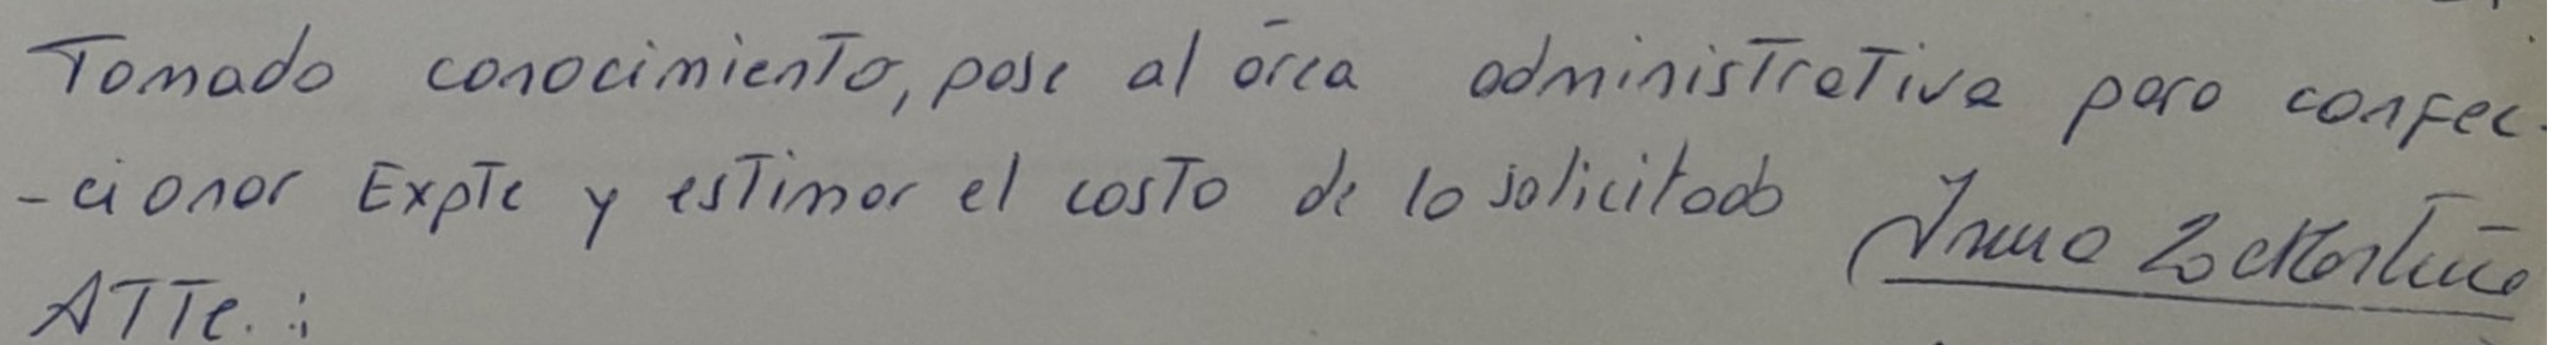 Tomado conocimiento, pase al área administrativa para confec-
-cionar Expte y estimar el costo de lo solicitado
ATTe. :